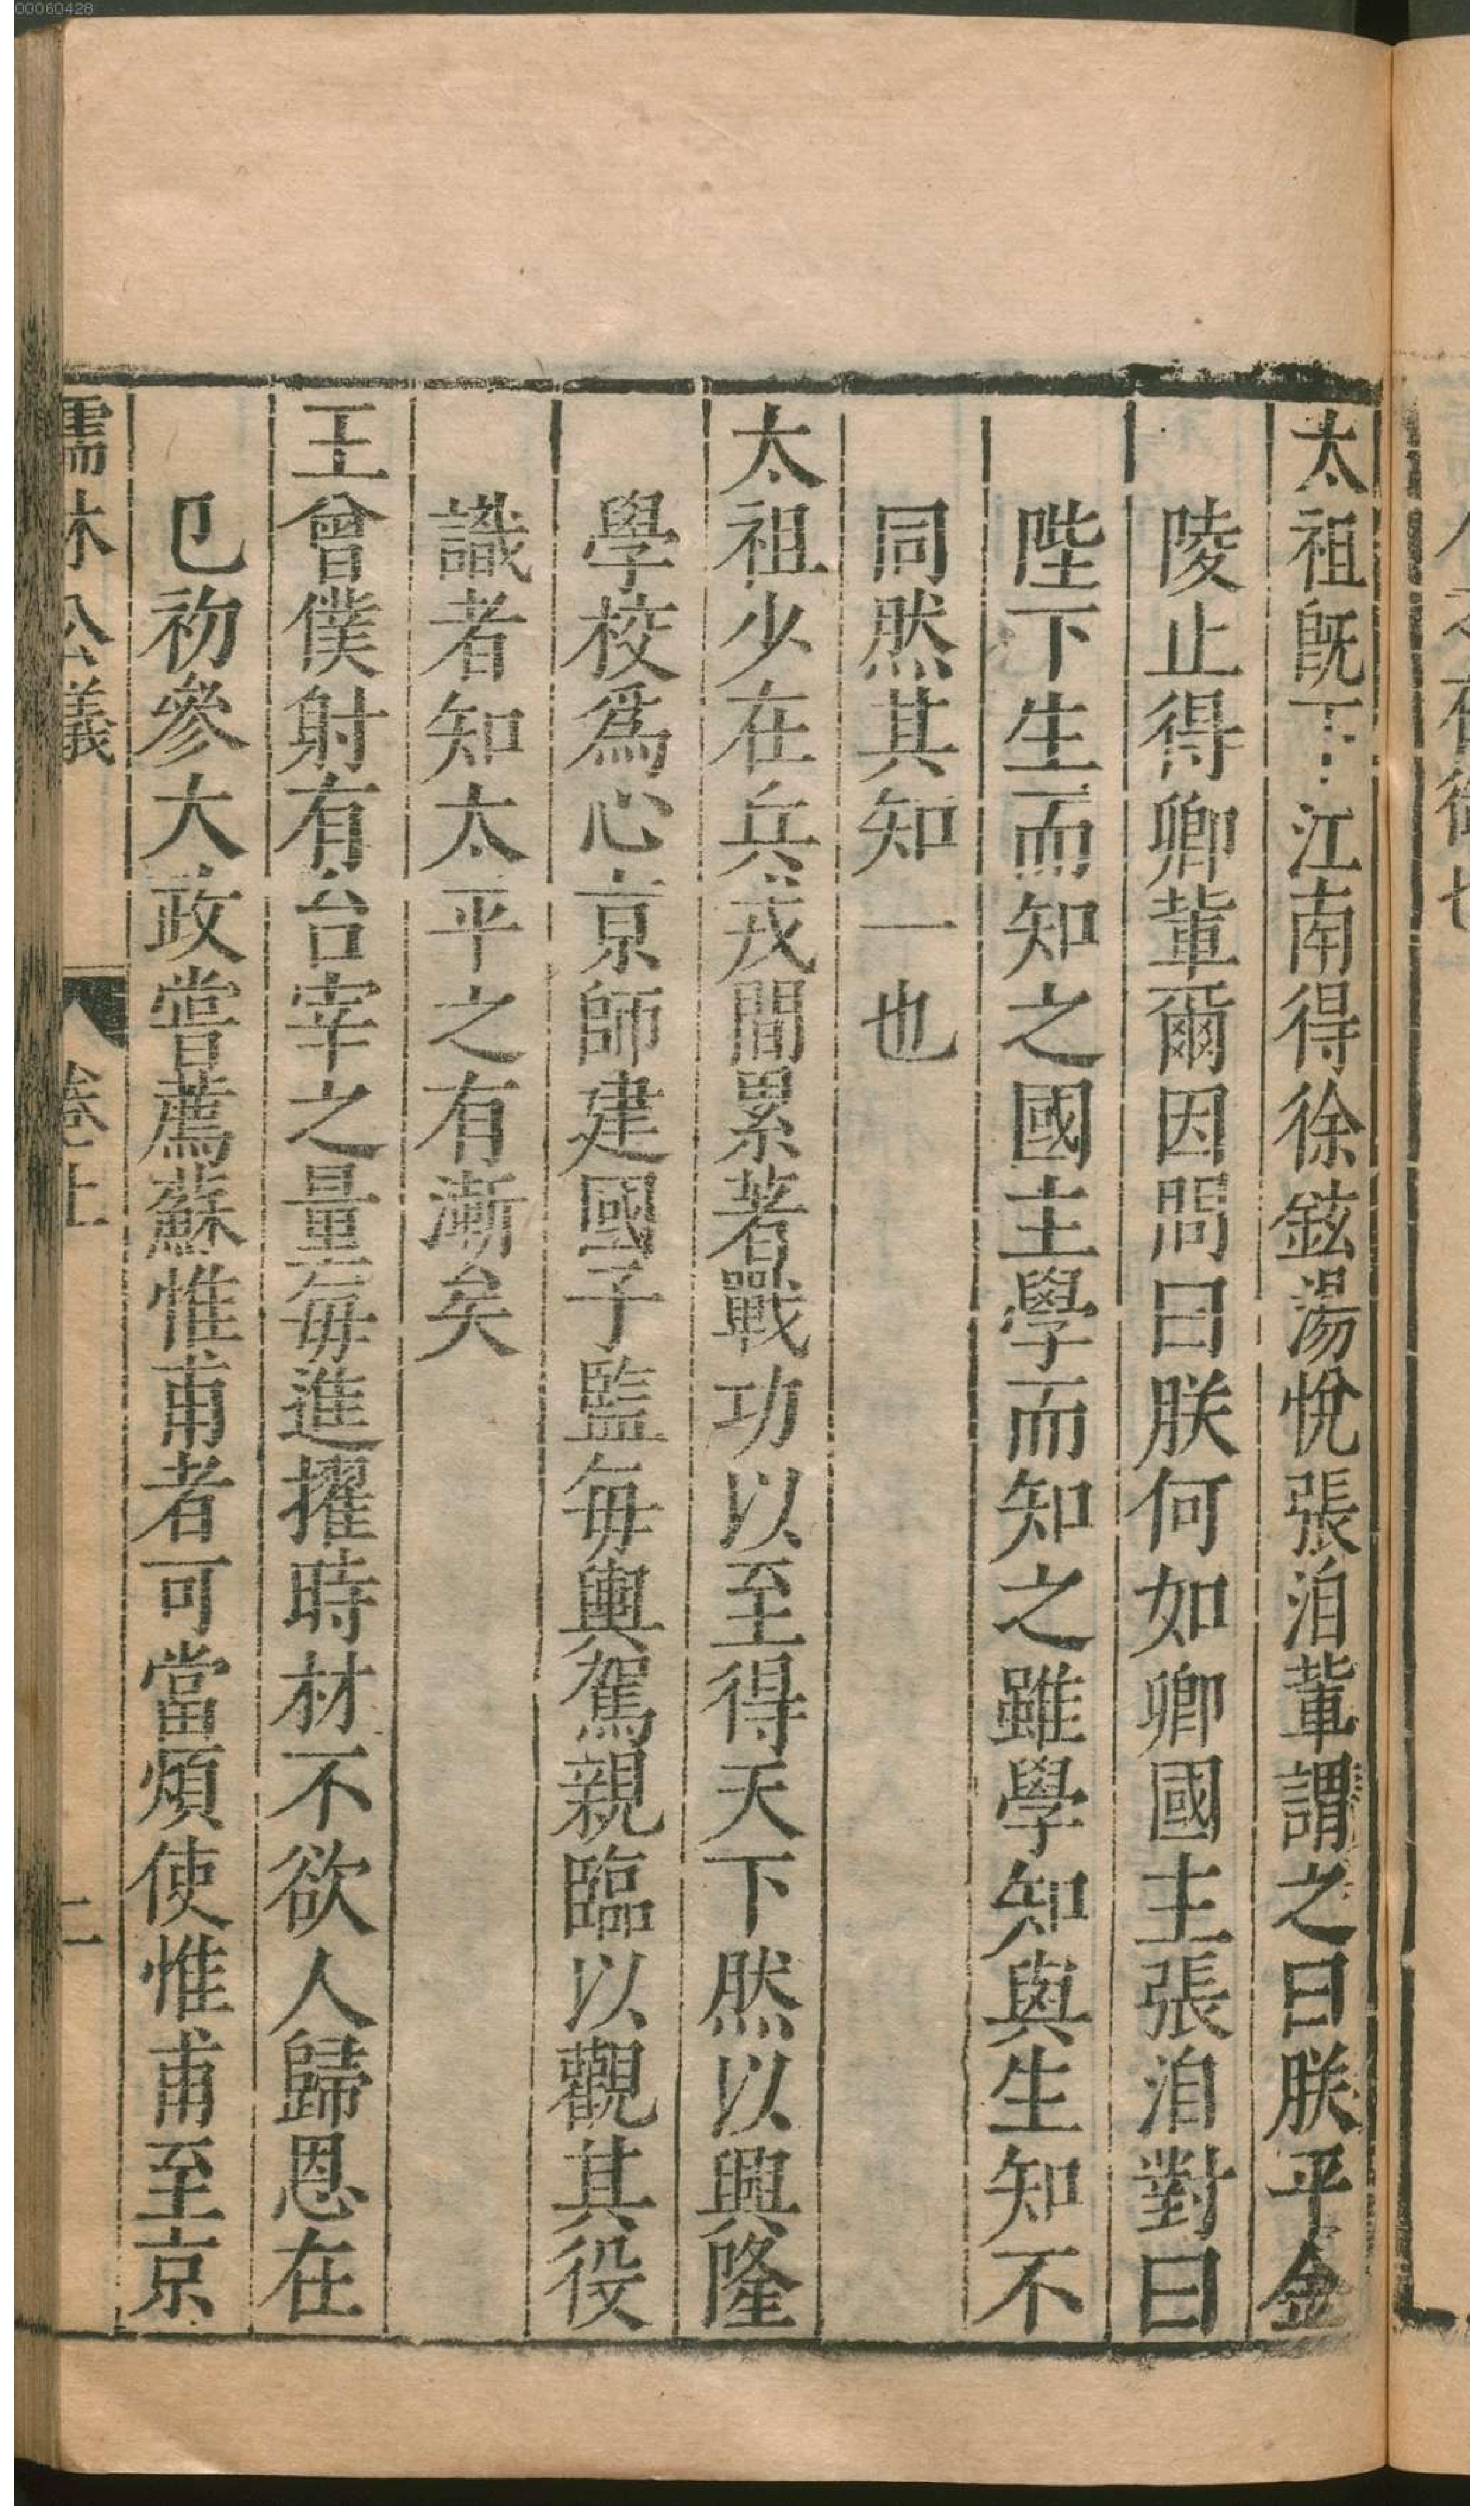 太祖旣下江南得徐鉉湯悅張洎輩謂之曰朕平金
陵止得卿輩爾因問曰朕何如卿國主張洎對曰
陛下生而知之國主學而知之雖學知與生知不
同然其知一也
太祖少在兵戎間累著戰功以至得天下然以興隆
學校爲心京師建國子監毎輿駕親臨以觀其役
識者知太平之有漸矣
王曾僕射有台宰之量毎進擢時材不欲人歸恩在
已初參大政嘗薦蘇惟甫者可當煩使惟甫至京
儒林公議 卷上 二
00060428